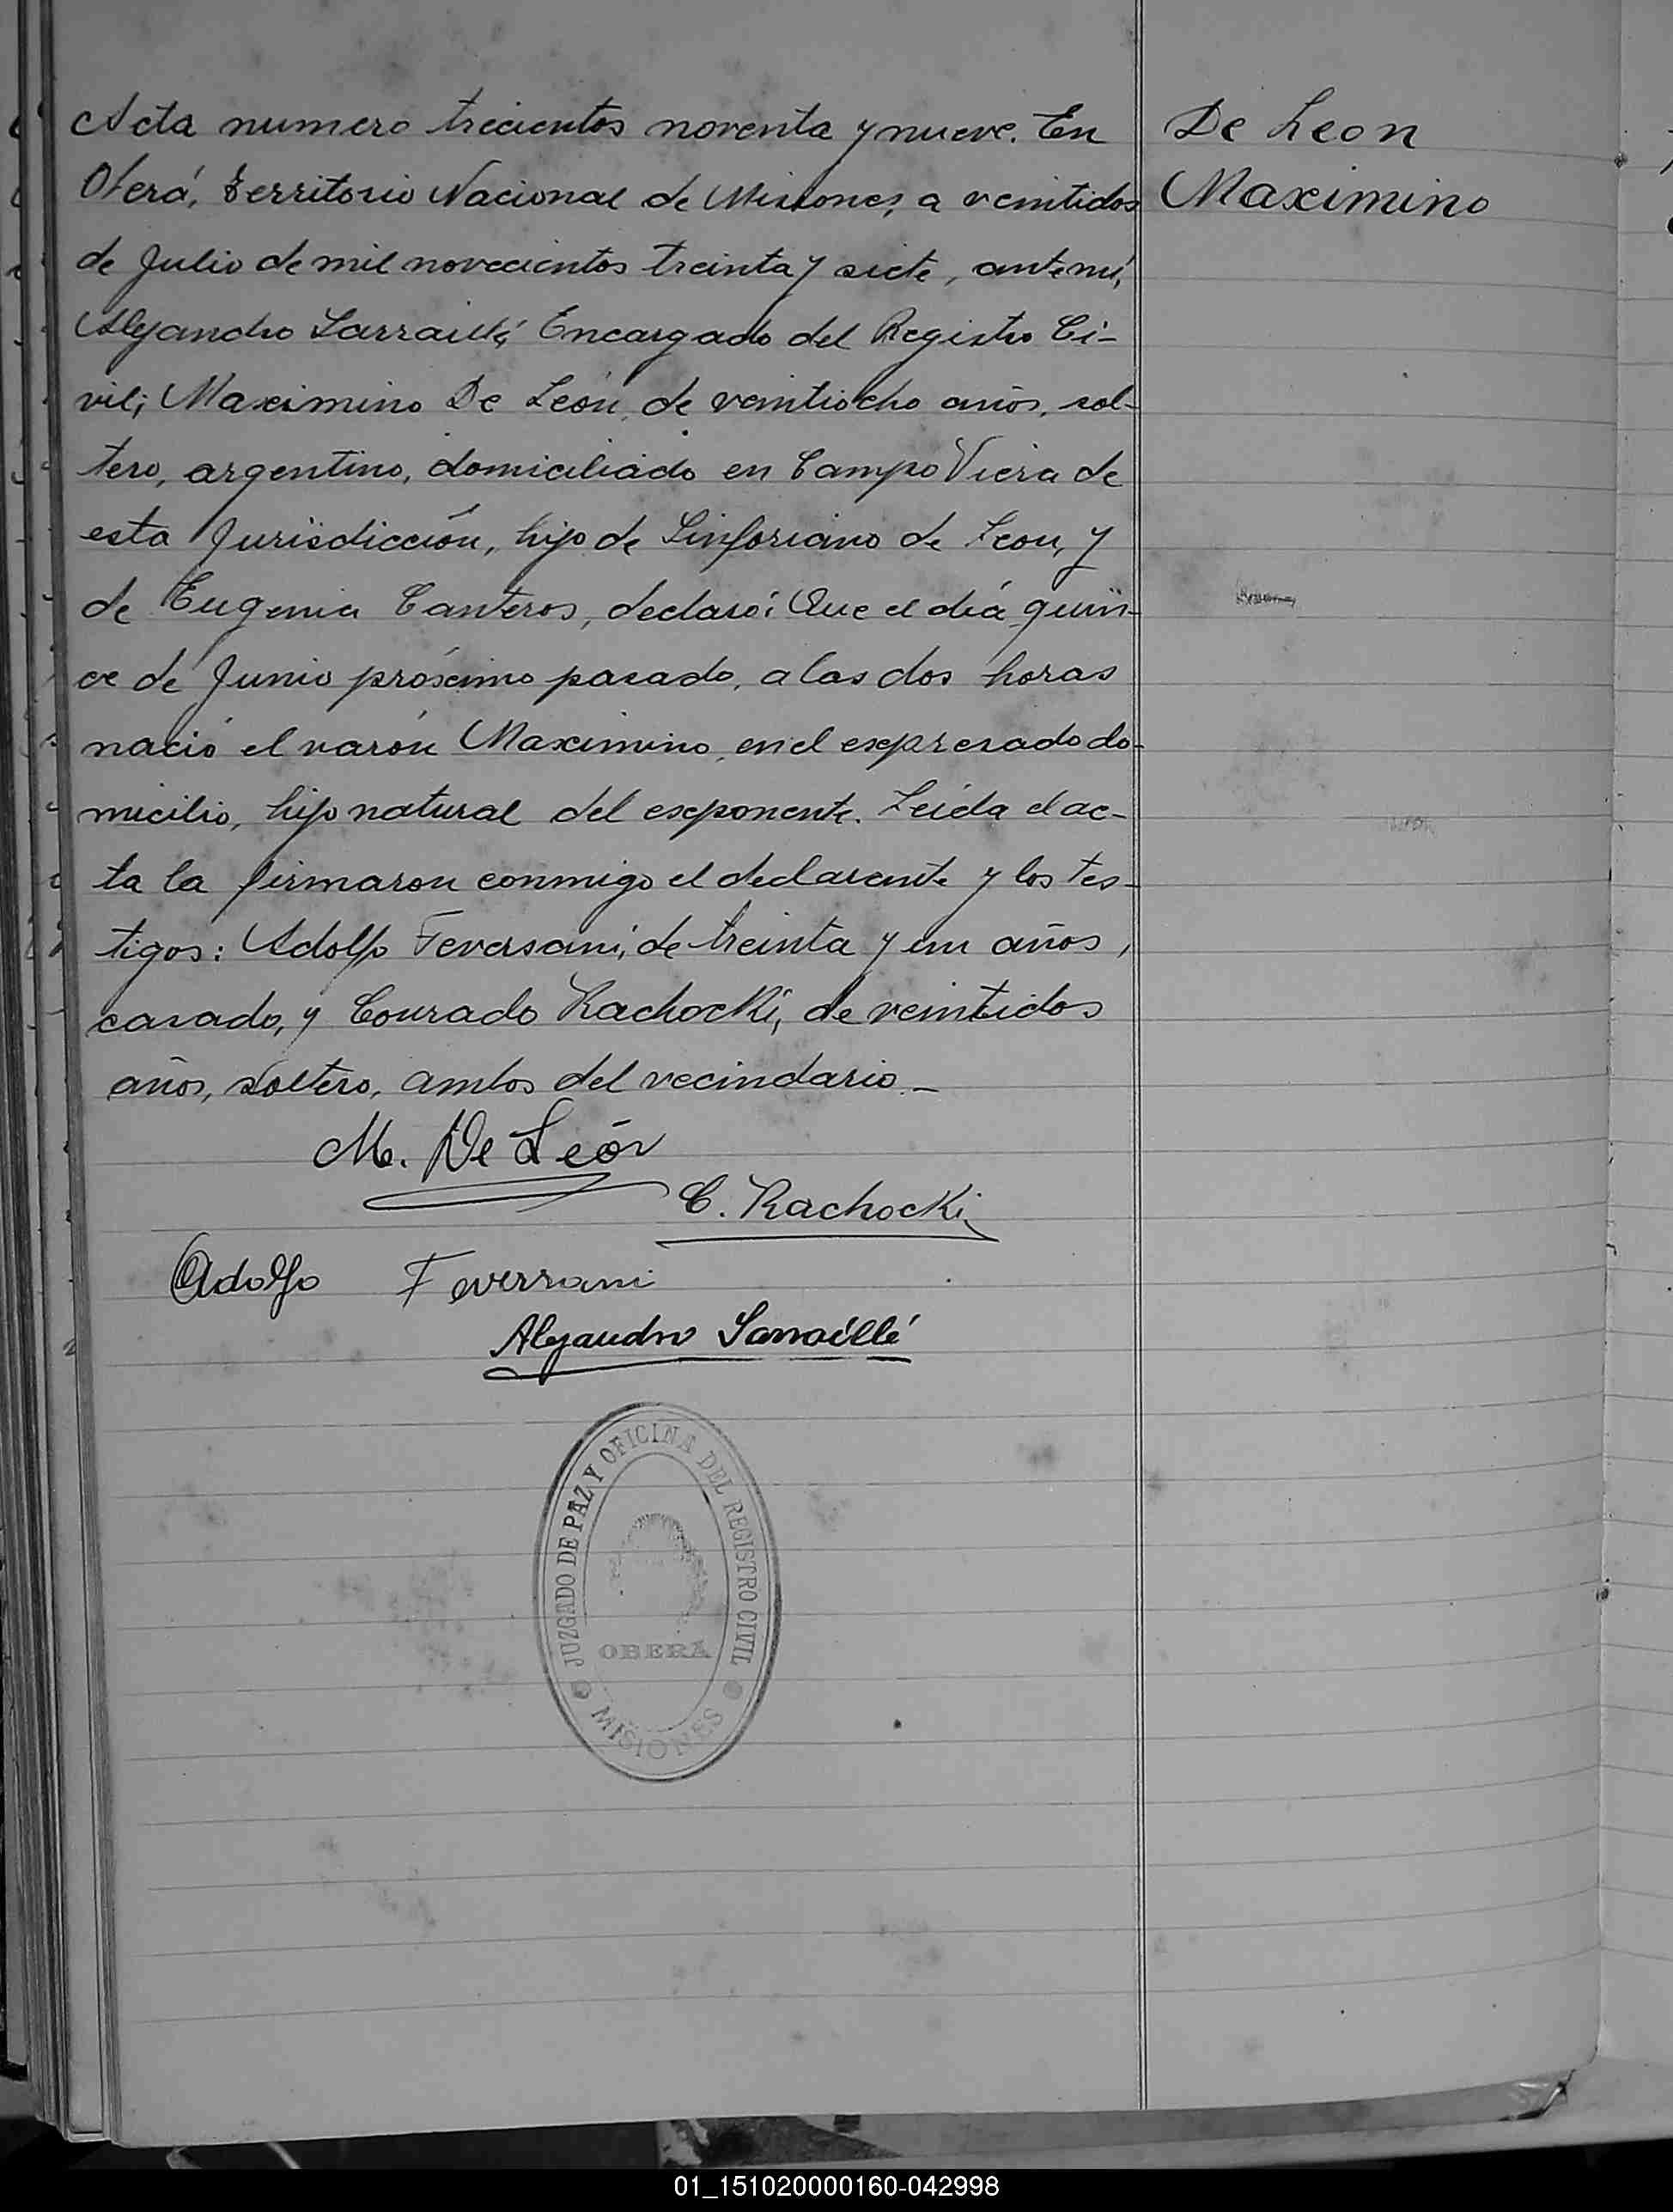 Acta numero trecientos noventa y nueve. En
Oberá, Territorio Nacional de Misiones, a veintidos
de Julio de mil novecientos treinta y siete, ante mi,
Alejandro Larraillé, Encargado del Registro Ci-
vil; Maximino De León, de veintiocho años, sol-
tero, argentino, domiciliado en Campo Viera de
esta Jurisdicción, hijo de Sinforiano de Leon, y
de Eugenia Canteros, declaró: Que el día quin-
ce de Junio próximo pasado, a las dos horas
nació el varón Maximino, en el expresado do-
micilio, hijo natural del exponente. Leída el ac-
ta la firmaron conmigo el declarante y los tes-
tigos: Adolfo Feversani, de treinta y un años,
casado, y Conrado Rachocki, de veintidos
años, soltero, ambos del vecindario.-
De Leon
Maximino
M. De León
C. Rachocki
Adolfo Feversani
Alejandro Larraillé
JUZGADO DE PAZ Y OFICINA DEL REGISTRO CIVIL
OBERA
MISIONES
01_151020000160-042998